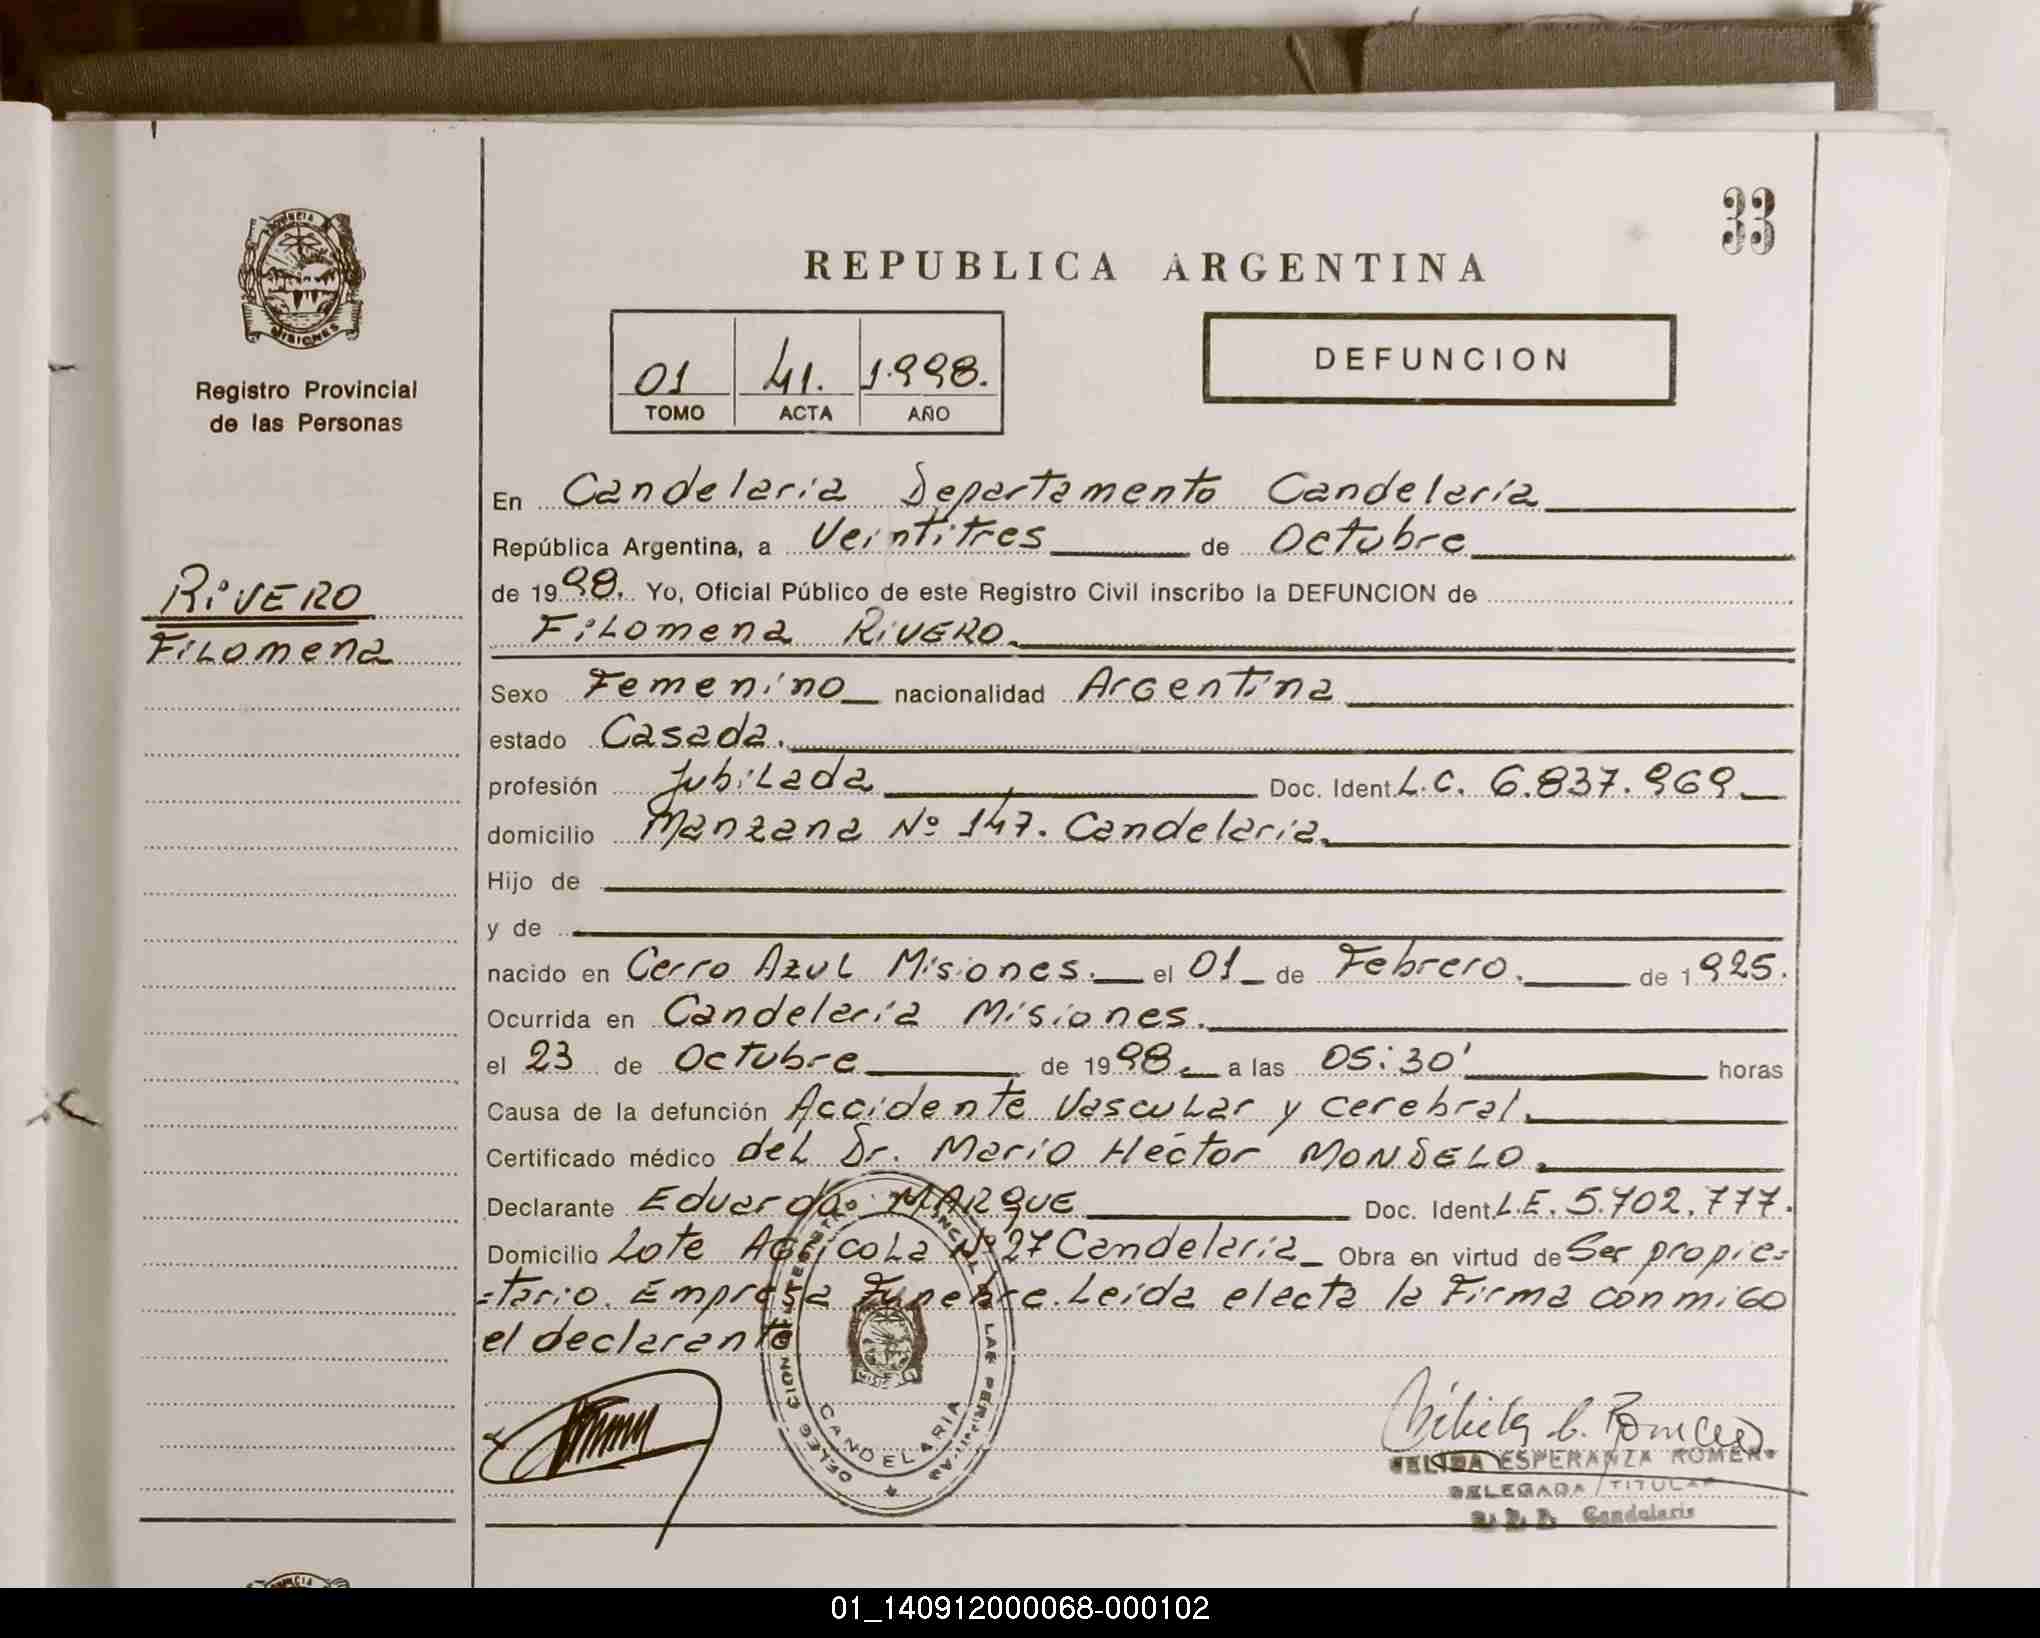 33
REPUBLICA ARGENTINA
PROVINCIA
MISIONES
Registro Provincial
de las Personas
01 41. 1.998.
TOMO ACTA AÑO
DEFUNCION
RiVERO
FiLomena
En Candelaria Departamento Candelaria
República Argentina, a Veintitres de Octubre
de 1998. Yo, Oficial Público de este Registro Civil inscribo la DEFUNCION de
FiLomena RiVERO.
Sexo Femenino nacionalidad Argentina
estado Casada.
profesión JubiLada Doc. Ident. L.C. 6.837.969
domicilio Manzana Nº 147. Candelaria.
Hijo de
y de
nacido en Cerro AzuL Misiones. el 01 de Febrero. de 1925.
Ocurrida en Candelaria Misiones.
el 23 de Octubre de 1998 a las 05:30' horas
Causa de la defunción Accidente VascuLar y cerebral.
Certificado médico deL Dr. Mario Héctor MONDELO.
Declarante Eduardo MARQUE Doc. Ident. L.E. 5.702.777.
Domicilio Lote AgricoLa Nº 27 Candelaria Obra en virtud de Ser propie=
=tario. Empresa Funebre. Leida electa la Firma conmigo
el declarante
CANDELARIA
NELIDA ESPERANZA ROMERO
DELEGADA TITULAR
R. P. P. Candelaria
01_140912000068-000102